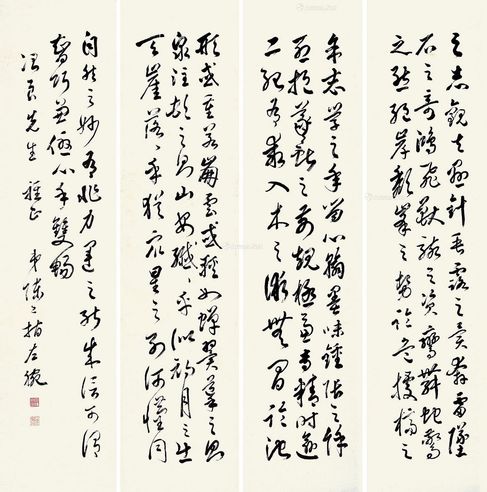 之志觀夫懸針垂露之異奔雷墜
石之奇鴻飛獸駭之資鸞舞蛇驚
之態絕岸頹峯之勢臨危據槁之
余志學之年留心翰墨味鍾張之餘
烈挹羲獻之前規極慮專精時逾
二紀有乖入木之術無間臨池
形或重若崩雲或輕如蟬翼導之則
泉注頓之則山安纖纖乎似初月之出
天崖落落乎猶眾星之列河漢同
自然之妙有非力運之能成信可謂
智巧兼優心手雙暢
良先生 雅正 弟陳 左腕